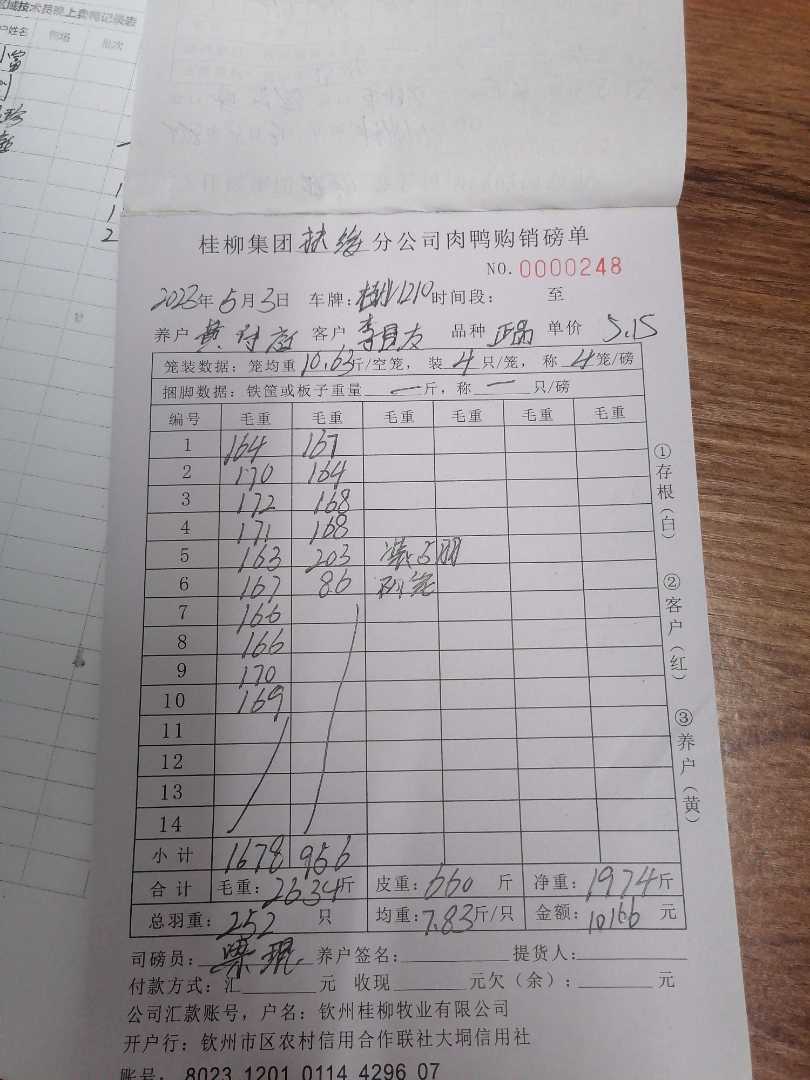 区域技术员晚上卖鸭记录表
户姓名 鸭场 批次
桂柳集团扶绥分公司肉鸭购销磅单
NO. 0000248
2023年5月3日 车牌:桂 1210时间段: 至
养户 黄 庭 客户 李 友 品种 正品 单价 5.15
笼装数据: 笼均重10.65斤/空笼, 装4只/笼, 称4笼/磅
捆脚数据: 铁筐或板子重量 一 斤, 称 一 只/磅
编号 毛重 毛重 毛重 毛重 毛重 毛重
1 164 167
2 170 164
3 172 168
4 171 168
5 163 203 装5羽
6 167 86 两笼
7 166
8 166
9 170
10 169
11
12
13
14
小计 1678 956
合计 毛重: 2634斤 皮重: 660 斤 净重: 1974斤
总羽重: 252 只 均重: 7.83斤/只 金额: 10166 元
司磅员: 梁琨 养户签名: 提货人:
付款方式: 汇 元 收现 元欠(余): 元
公司汇款账号, 户名: 钦州桂柳牧业有限公司
开户行: 钦州市区农村信用合作联社大垌信用社
账号: 8023 1201 0114 4296 07
①存根(白)
②客户(红)
③养户(黄)